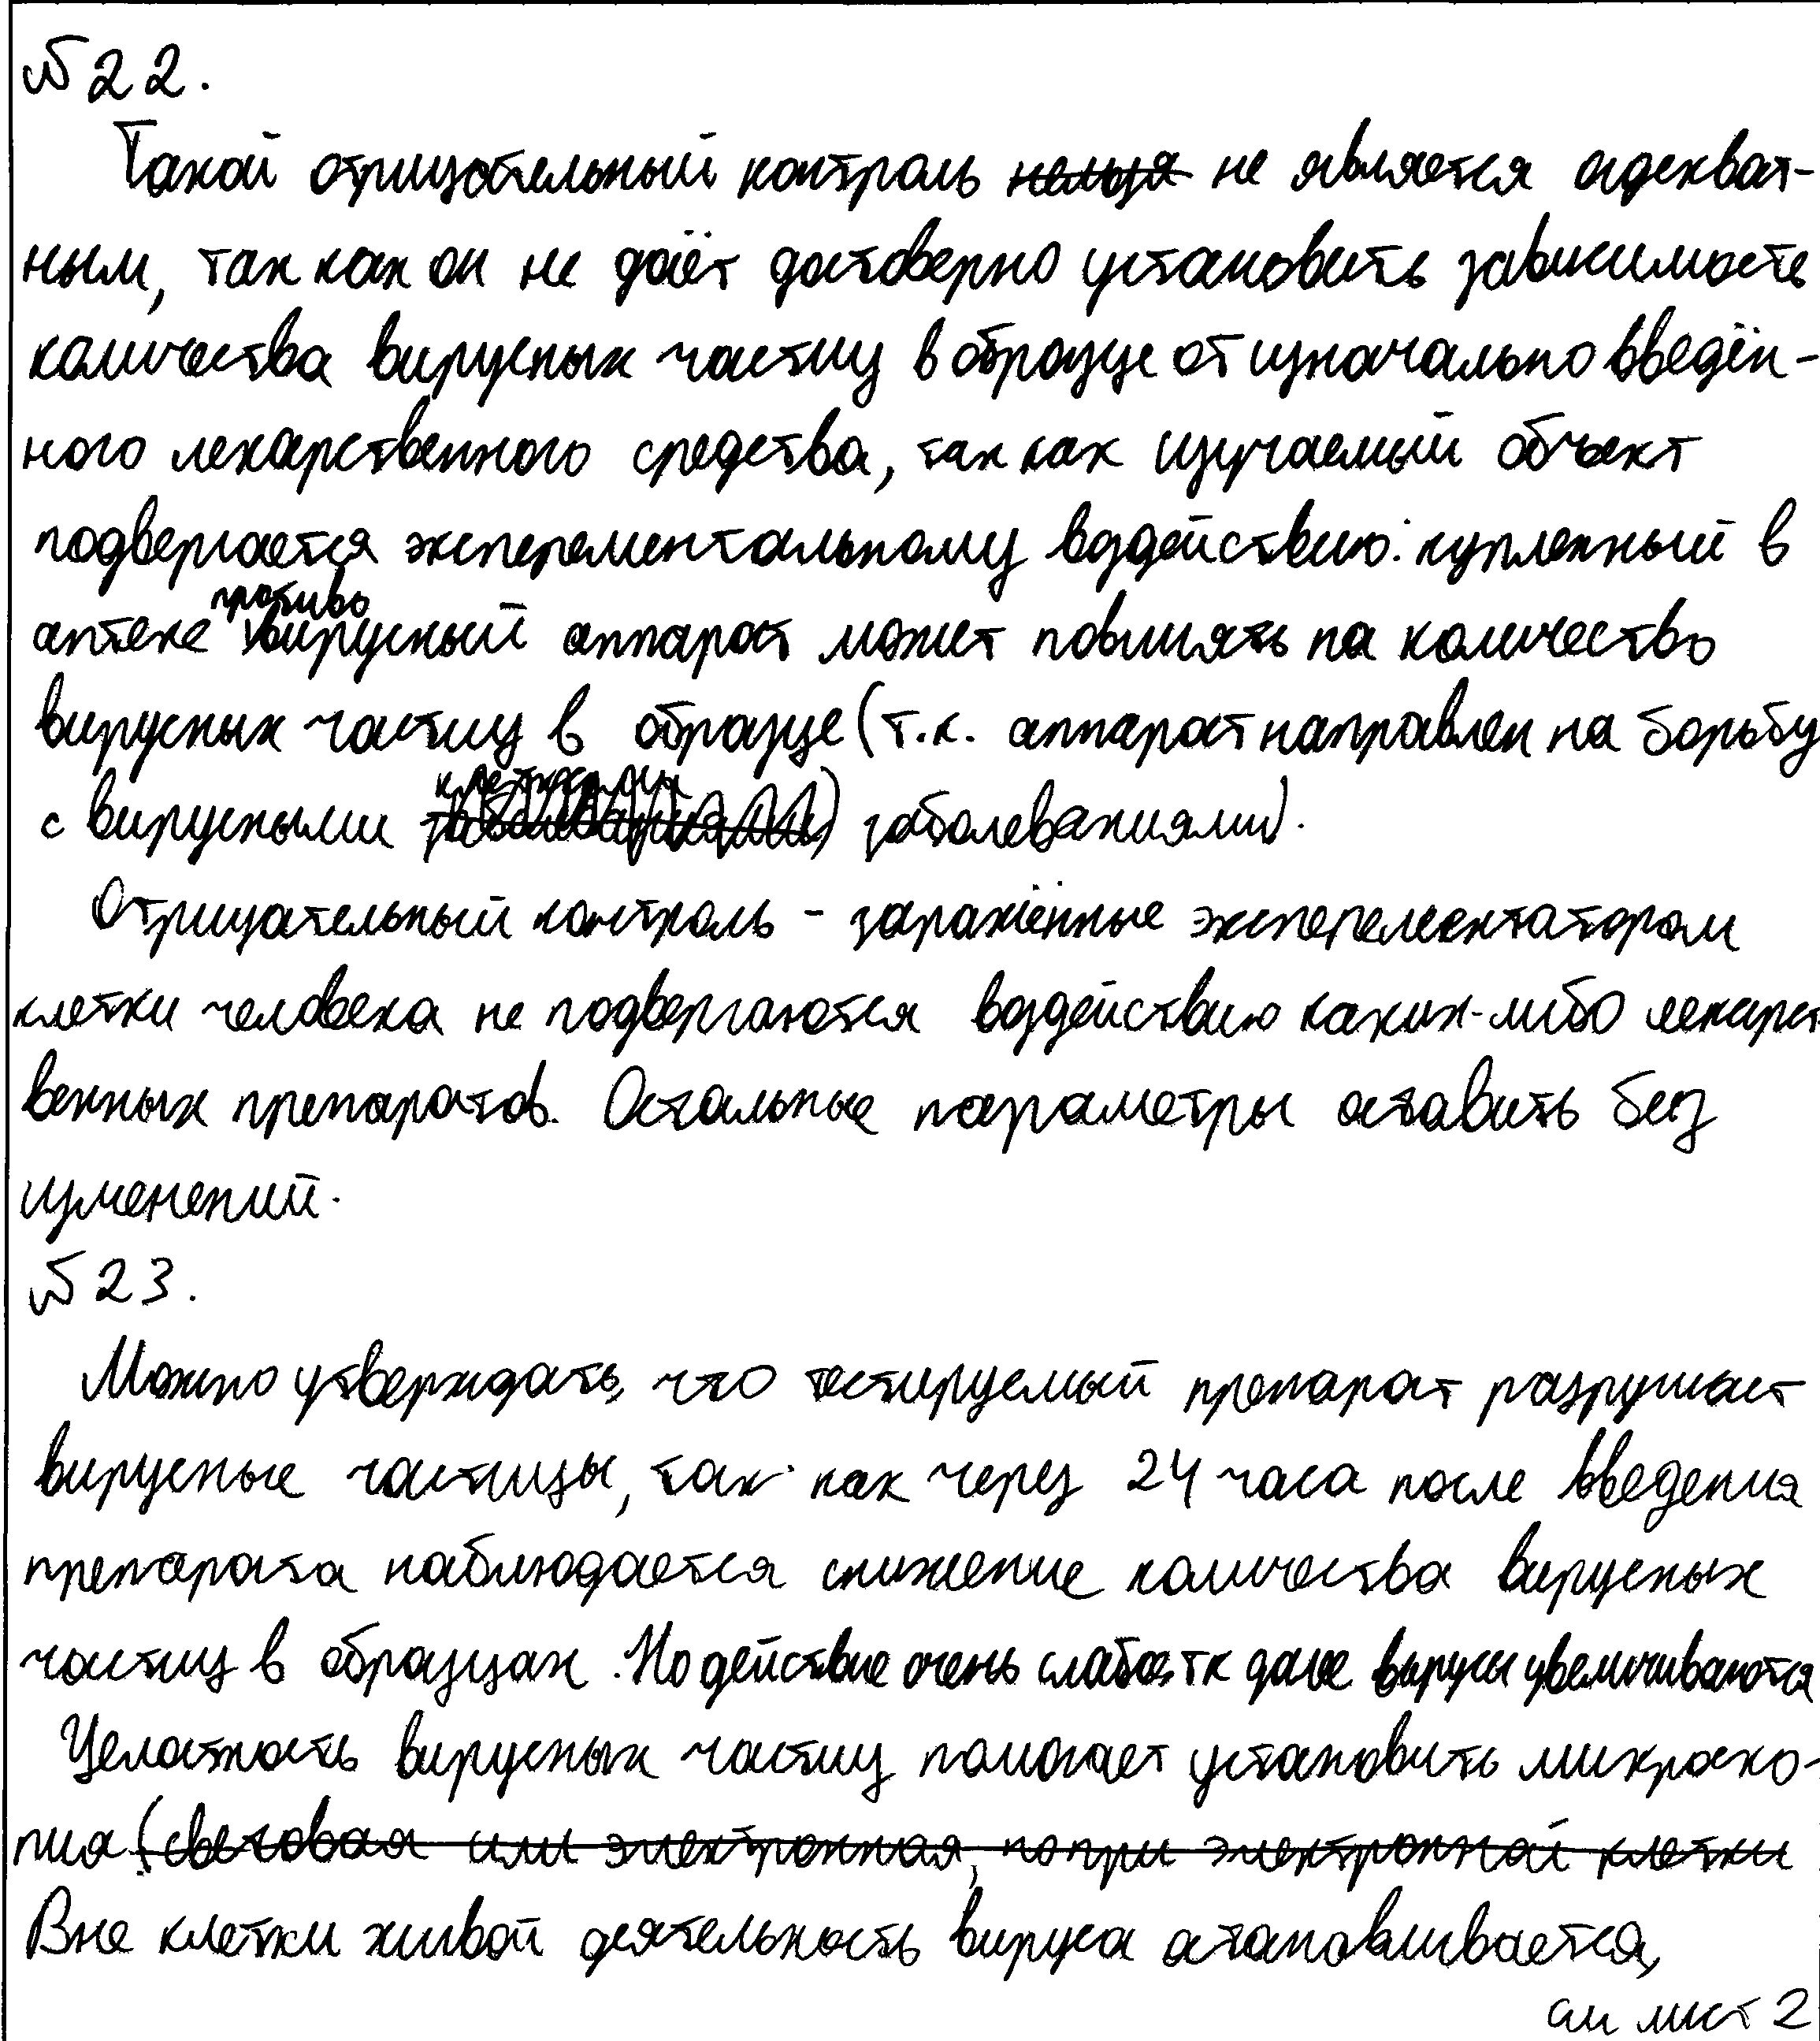 № 22.
Такой отрицательный контроль нельзя не является адекват-
ным, так как он не даёт достоверно установить зависимость
количества вирусных частиц в образце от изначально введён-
ного лекарственного средства, так как изучаемый объект
подвергается эксперементальному воздействию: купленный в
аптеке противовирусный аппарат может повлиять на количество
вирусных частиц в образце (т.к. аппарат направлен на борьбу
с вирусными заболеваниями).
Отрицательный контроль - заражённые эксперементатором
клетки человека не подвергаются воздействию каких-либо лекарст
венных препаратов. Остальные параметры оставить без
изменений.
№ 23.
Можно утверждать, что тестируемый препарат разрушает
вирусные частицы, так как через 24 часа после введения
препарата наблюдается снижение количества вирусных
частиц в образцах. Но действие очень слабое, тк далее вирусы увеличиваются
Целостность вирусных частиц помогает установить микроско-
пия (световая или электронная, но при электронной клетки
Вне клетки живой деятельность вируса останавливается,
см лист 2